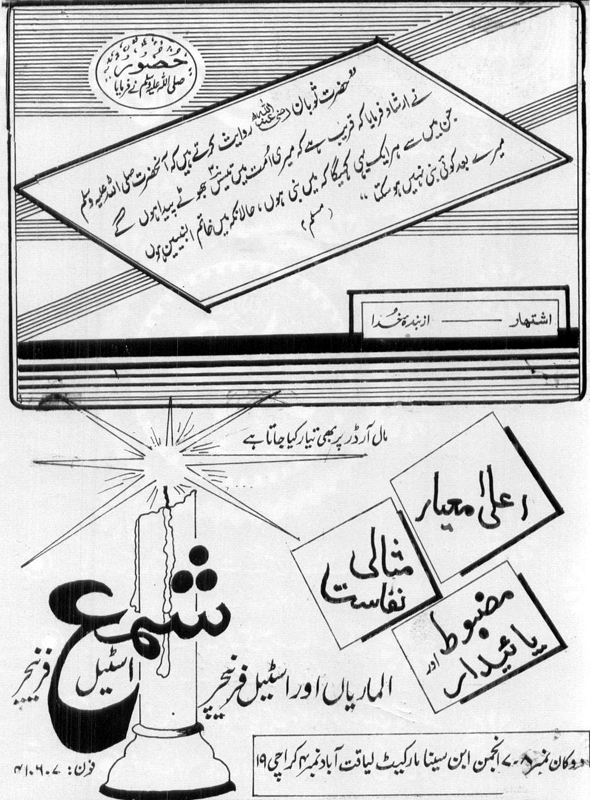 حضور
صلی اللہ علیہ وسلم نے فرمایا
"حضرت ثوبان رضی اللہ عنہ روایت کرتے ہیں کہ آنحضرت صلی اللہ علیہ وسلم
نے ارشاد فرمایا کہ قریب ہے کہ میری امت میں تیس ۳۰ جھوٹے پیدا ہوں گے
جن میں سے ہر ایک یہی کہیگا کہ میں نبی ہوں، حالانکہ میں خاتم النبیین ہوں
میرے بعد کوئی نبی نہیں ہو سکتا"
(مسلم)
اشتہار ——— از بندہ خدا
مال آرڈر پر بھی تیار کیا جاتا ہے
اعلیٰ معیار
مثالی
نفاست
مضبوط اور
پائیدار
شمع
اسٹیل فرنیچر
الماریاں اور اسٹیل فرنیچر
دوکان نمبر ۸-۷ انجمن ابن سینا مارکیٹ لیاقت آباد نمبر ۴ کراچی ۱۹
فون: ۴۱۰۶۰۷